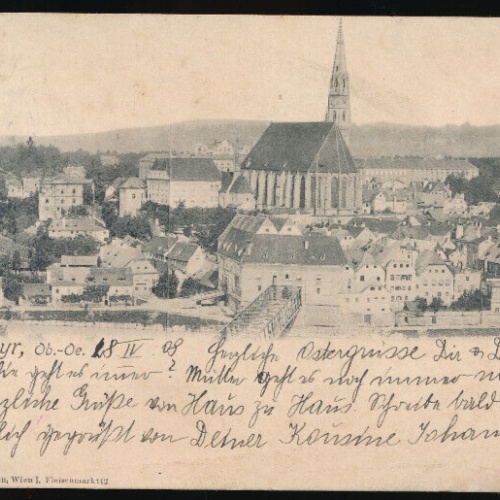 yr, Ob.-Oe. 18 IV 08 Herzliche Ostergrüsse Dir &
geht es immer? Mutter geht es noch immer
zliche Grüße von Haus zu Haus. Schreibe bald
lich gegrüßt von Deiner Kousine Johan
n, Wien I, Fleischmarkt 12